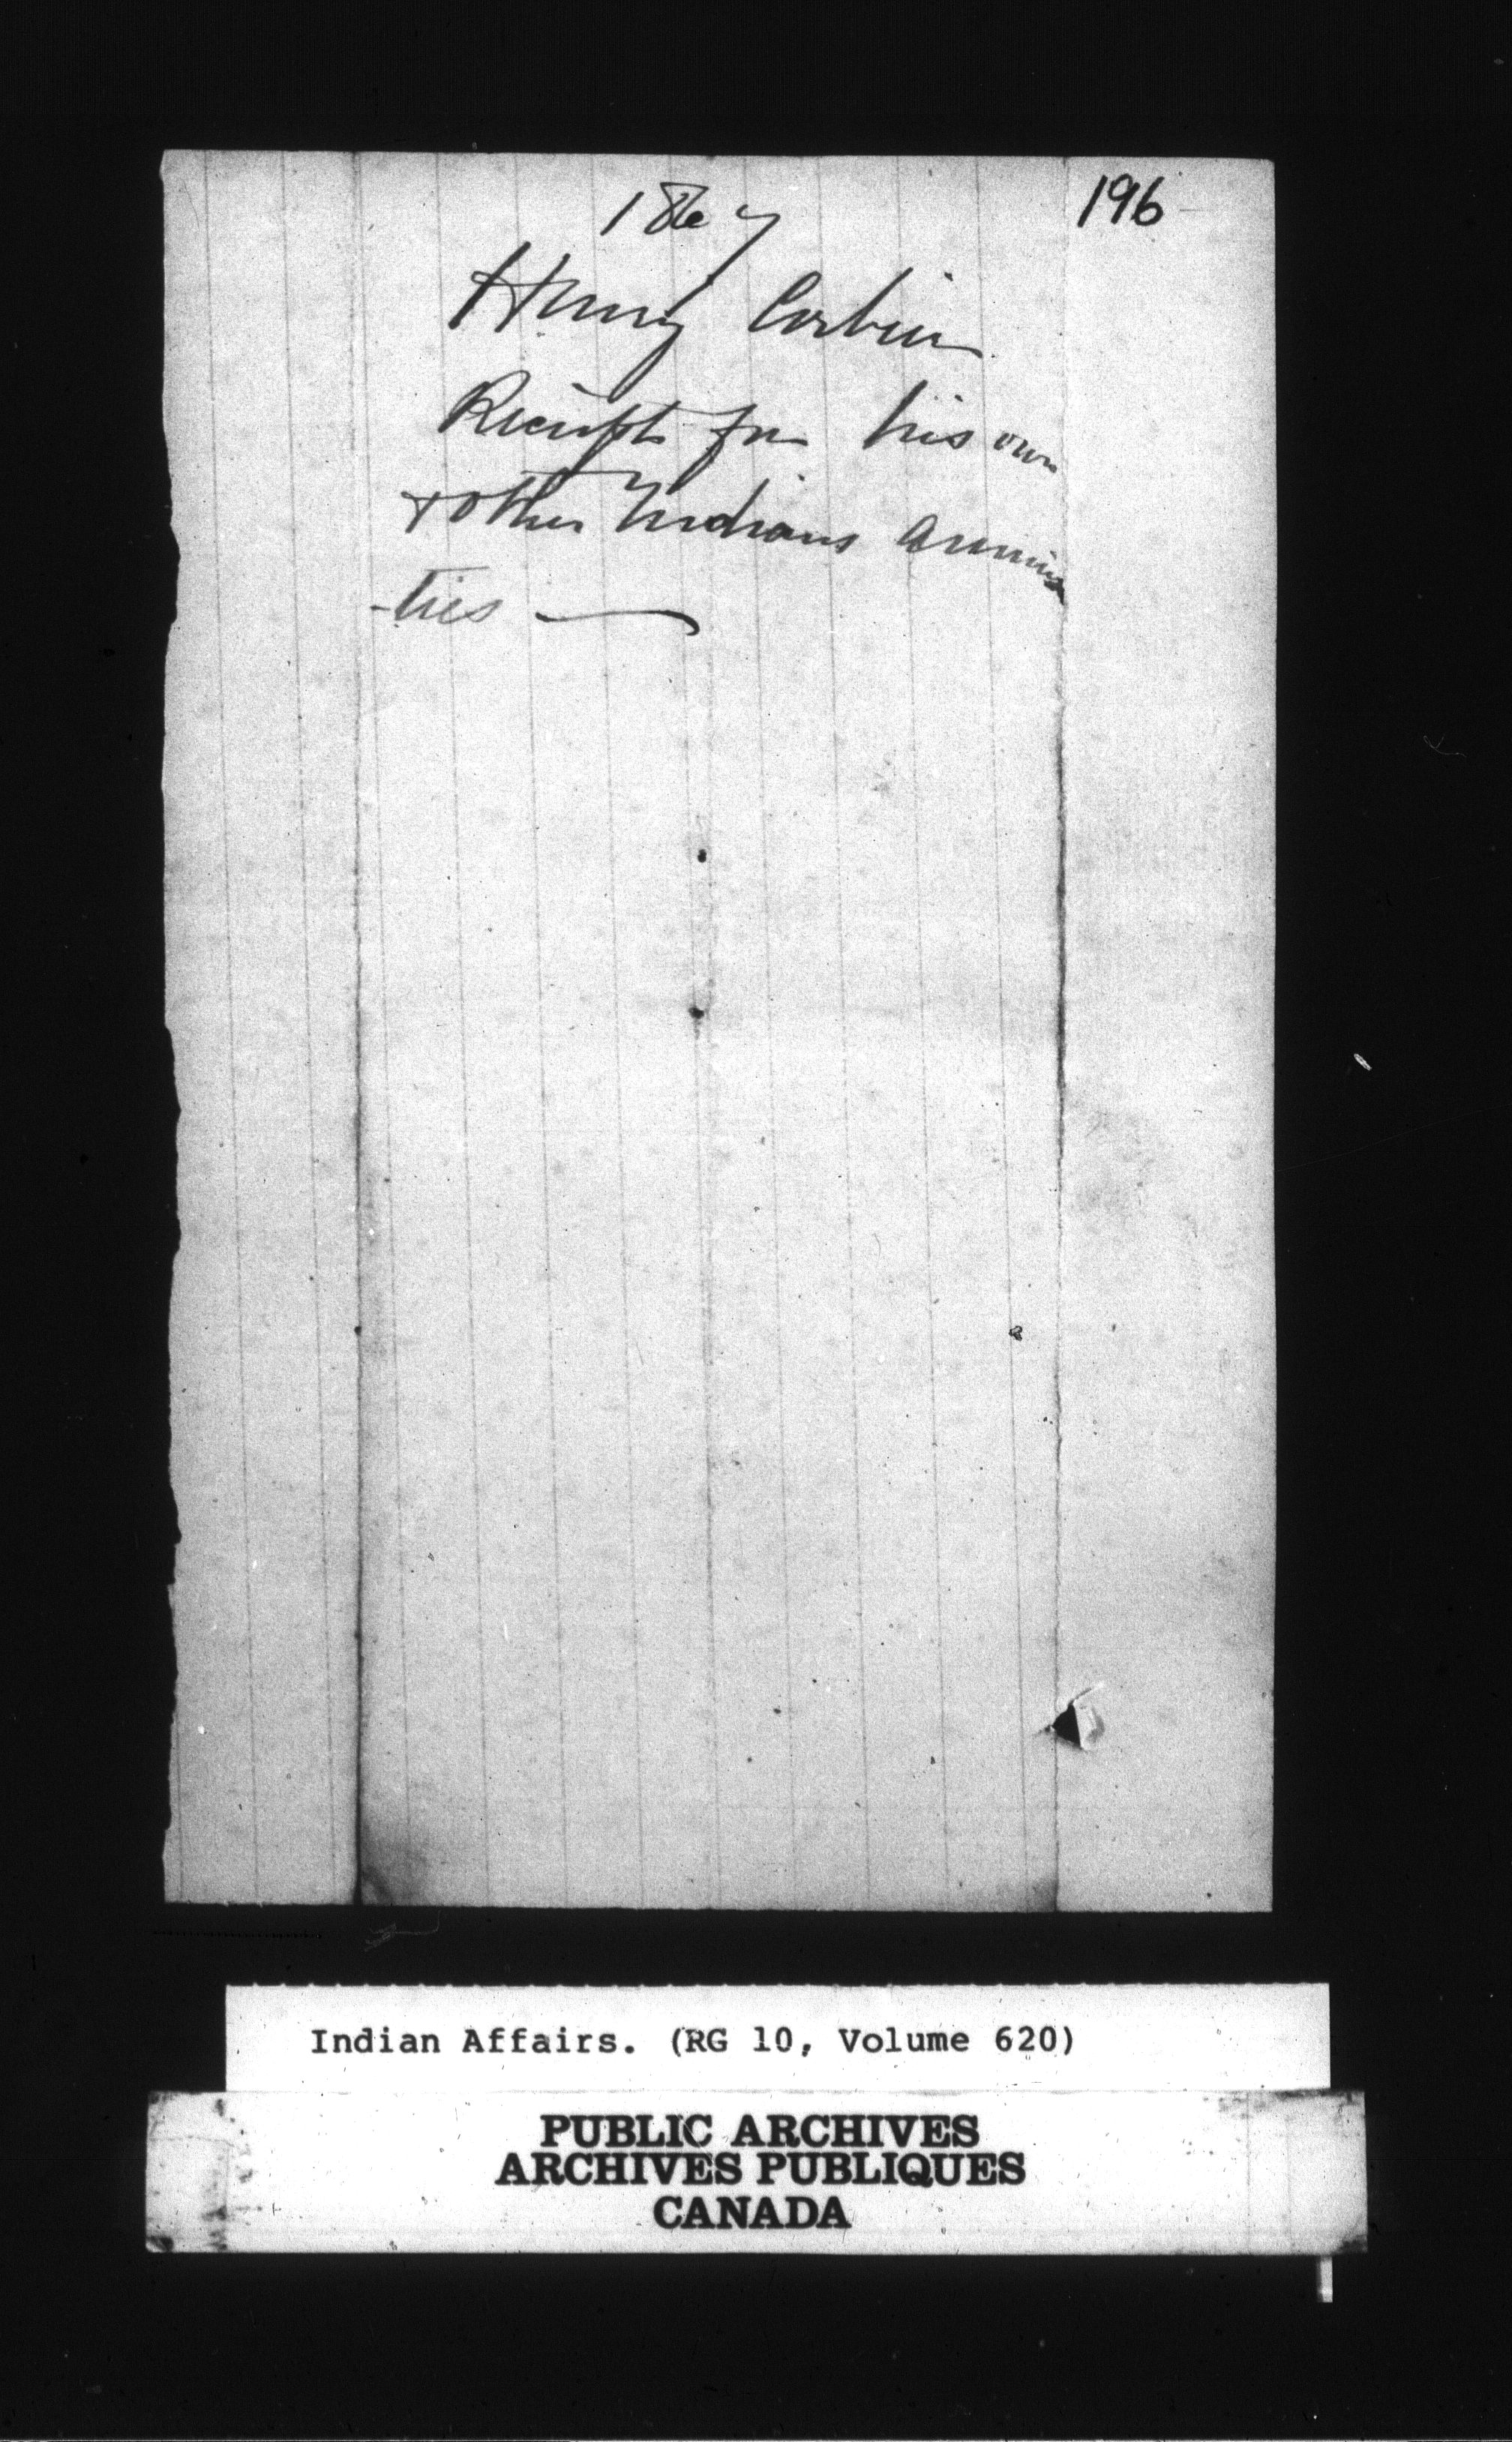 196
1867
Henry Corbin
Receipt for his own
+ other Indians Annui
-ties
Indian Affairs. (RG 10, Volume 620)
PUBLIC ARCHIVES
ARCHIVES PUBLIQUES
CANADA